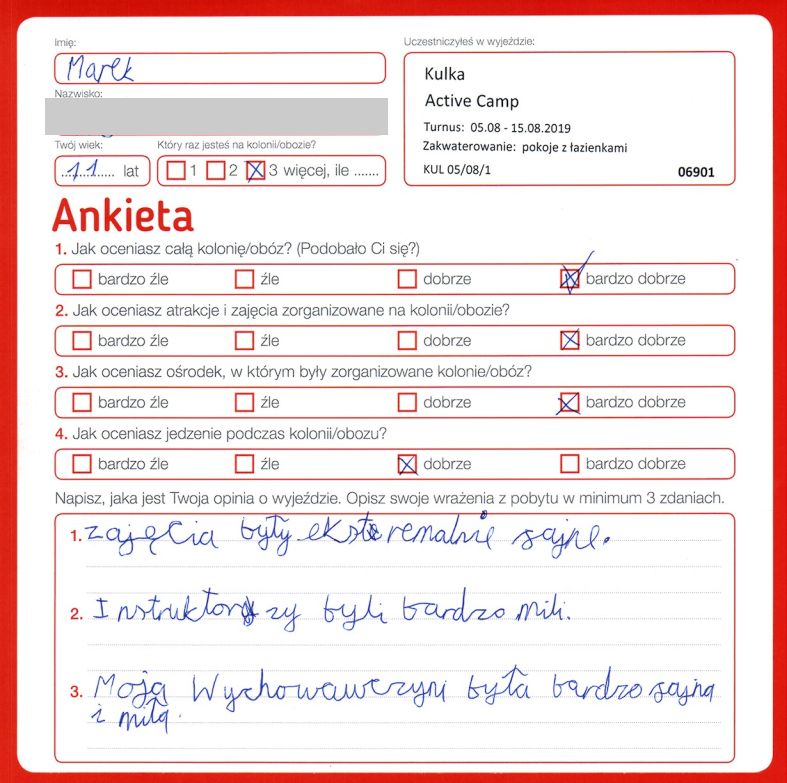 Imię:
Marek
Nazwisko:
Twój wiek:
11 lat
Który raz jesteś na kolonii/obozie?
1 2 3 więcej, ile .......
Uczestniczyłeś w wyjeździe:
Kulka
Active Camp
Turnus: 05.08 - 15.08.2019
Zakwaterowanie: pokoje z łazienkami
KUL 05/08/1 06901
Ankieta
1. Jak oceniasz całą kolonię/obóz? (Podobało Ci się?)
bardzo źle źle dobrze bardzo dobrze
2. Jak oceniasz atrakcje i zajęcia zorganizowane na kolonii/obozie?
bardzo źle źle dobrze bardzo dobrze
3. Jak oceniasz ośrodek, w którym były zorganizowane kolonie/obóz?
bardzo źle źle dobrze bardzo dobrze
4. Jak oceniasz jedzenie podczas kolonii/obozu?
bardzo źle źle dobrze bardzo dobrze
Napisz, jaka jest Twoja opinia o wyjeździe. Opisz swoje wrażenia z pobytu w minimum 3 zdaniach.
1. zajęcia były eksteremalnie fajne.
2. Instruktorzy byli bardzo mili.
3. Moja Wychowawczyni była bardzo fajna
i miła.